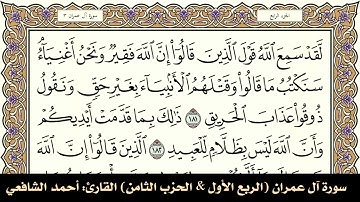 الجزء الرابع
سورة آل عمران ٣
لَّقَدْ سَمِعَ ٱللَّهُ قَوْلَ ٱلَّذِينَ قَالُوٓا۟ إِنَّ ٱللَّهَ فَقِيرٌ وَنَحْنُ أَغْنِيَآءُ
سَنَكْتُبُ مَا قَالُوا۟ وَقَتْلَهُمُ ٱلْأَنۢبِيَآءَ بِغَيْرِ حَقٍّ وَنَقُولُ
ذُوقُوا۟ عَذَابَ ٱلْحَرِيقِ ١٨١ ذَٰلِكَ بِمَا قَدَّمَتْ أَيْدِيكُمْ
وَأَنَّ ٱللَّهَ لَيْسَ بِظَلَّامٍ لِّلْعَبِيدِ ١٨٢ ٱلَّذِينَ قَالُوٓا۟ إِنَّ ٱللَّهَ
سورة آل عمران (الربع الأول & الحزب الثامن) القارئ: أحمد الشافعي